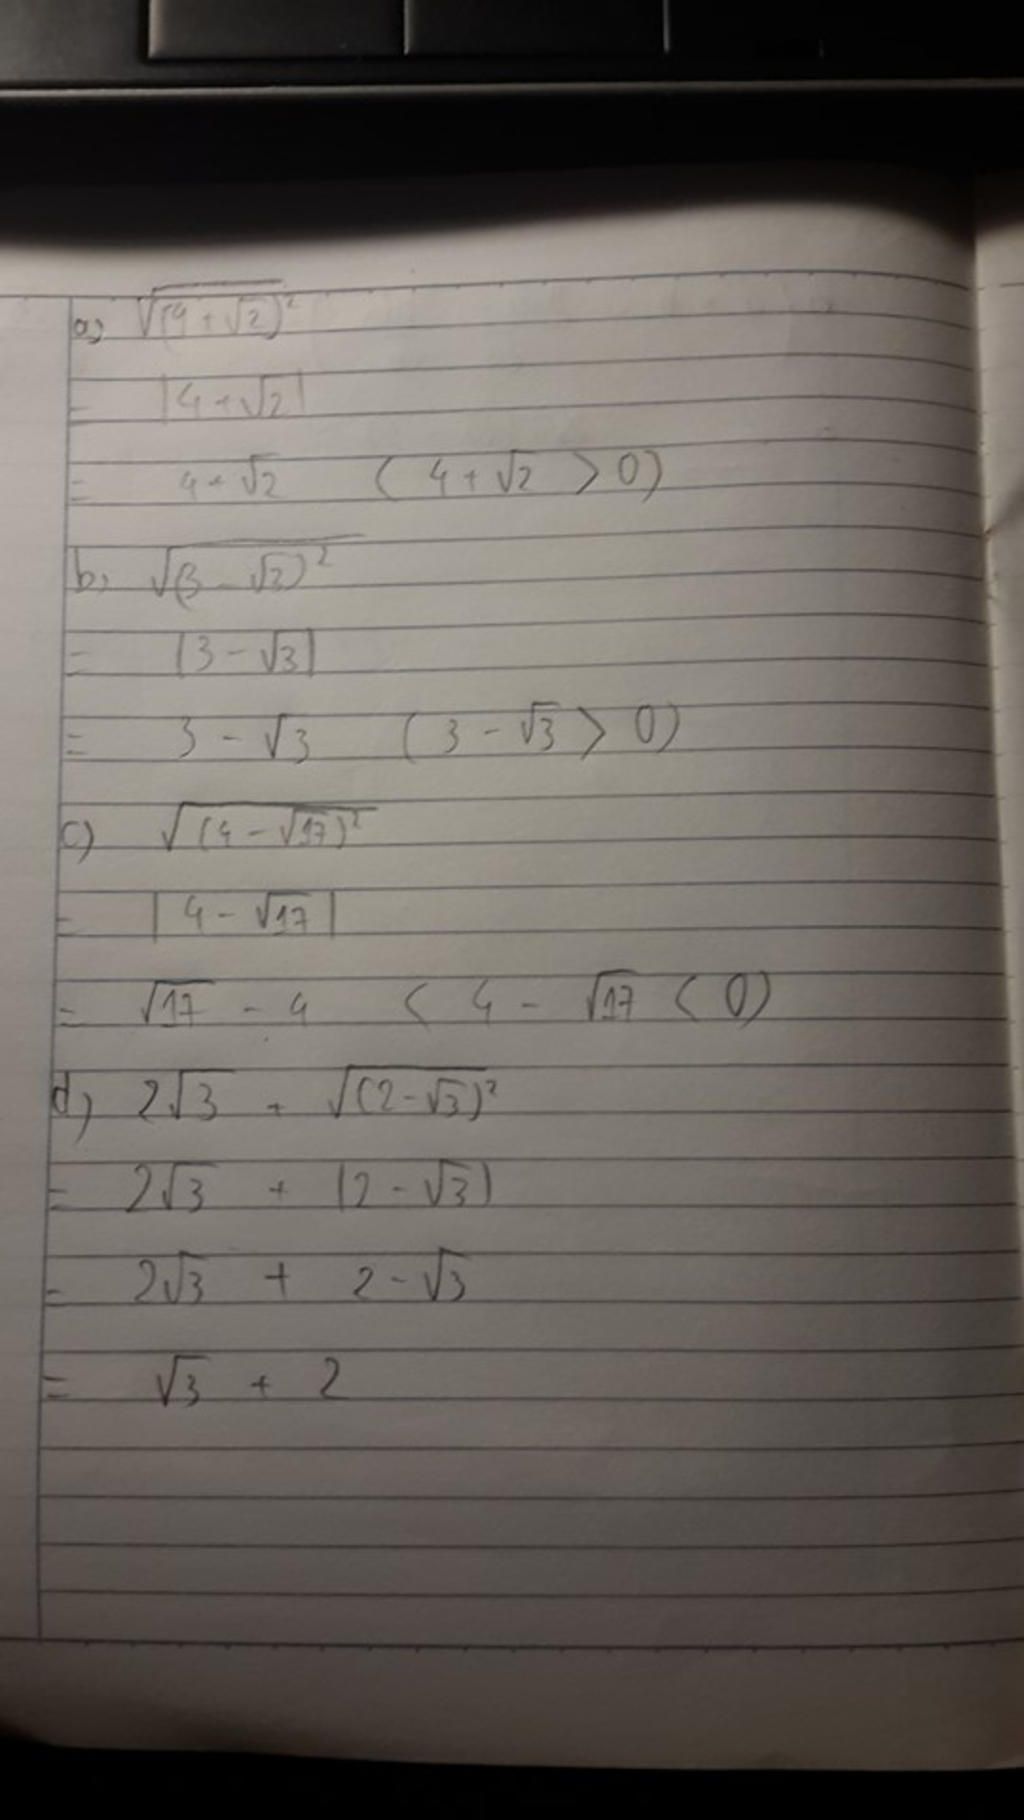 a) √(4 + √2)²
= |4 + √2|
= 4 + √2 ( 4 + √2 > 0)
b) √(3 - √2)²
= |3 - √3|
= 3 - √3 ( 3 - √3 > 0)
c) √(4 - √17)²
= | 4 - √17 |
= √17 - 4 ( 4 - √17 < 0)
d) 2√3 + √(2-√3)²
= 2√3 + |2 - √3|
= 2√3 + 2 - √3
= √3 + 2